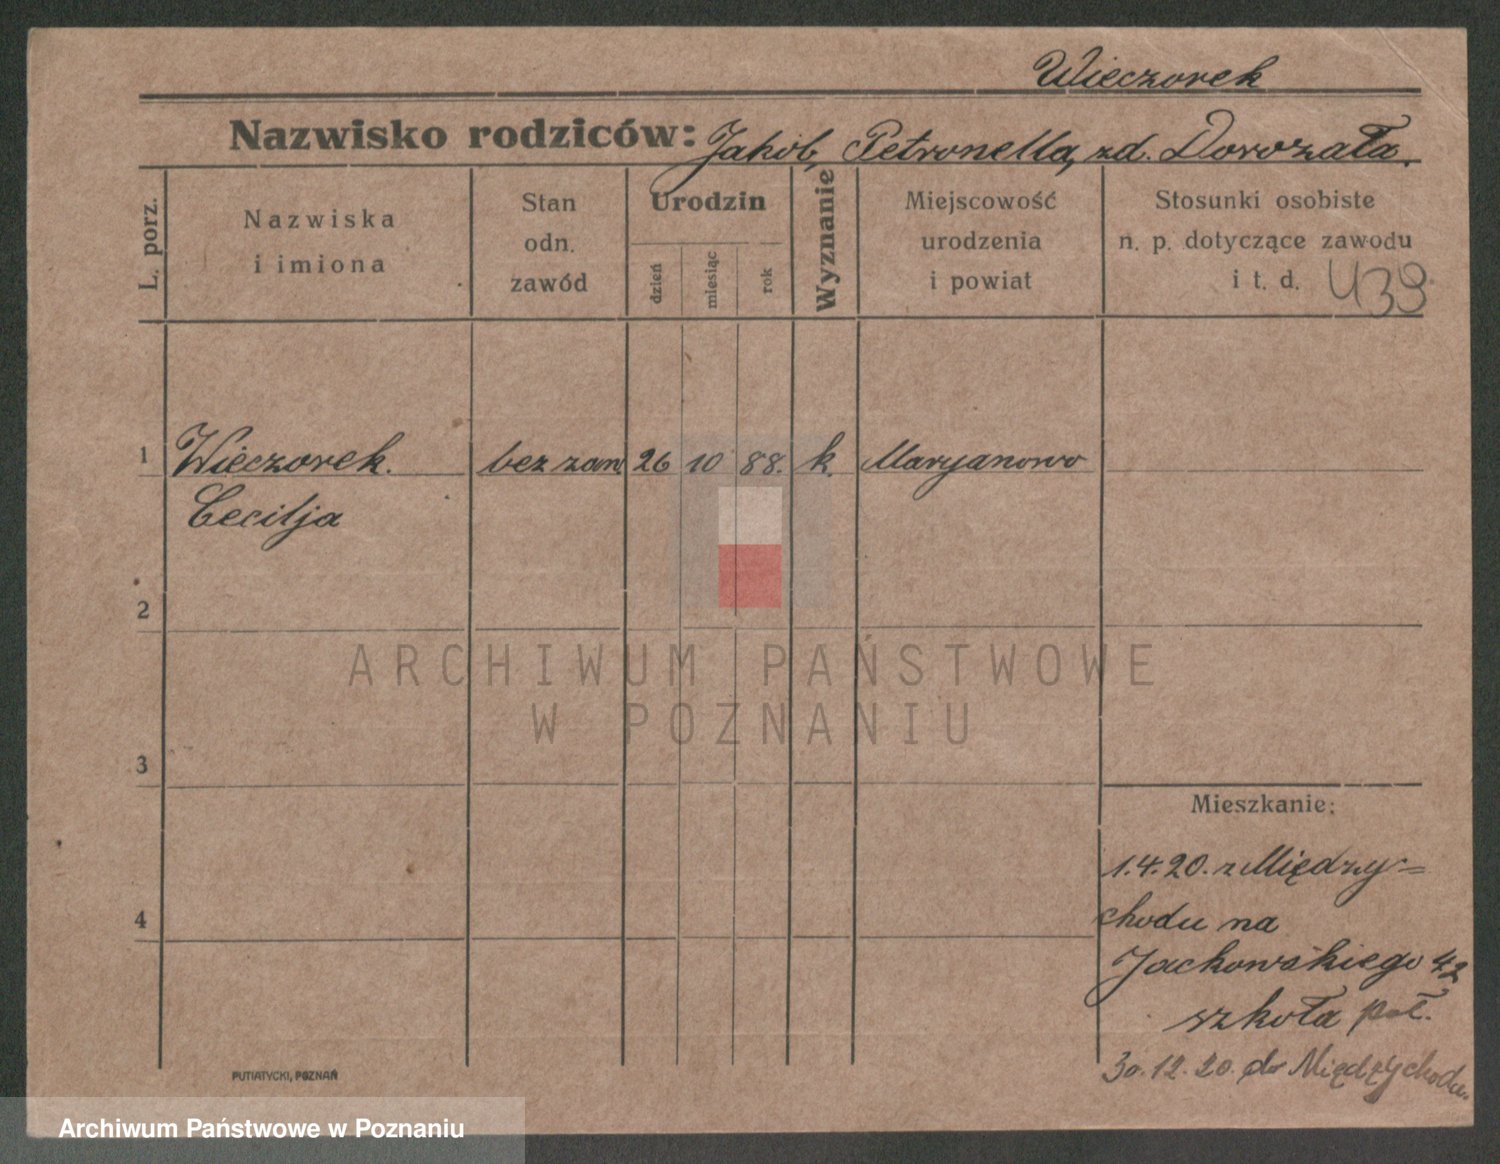 Wieczorek
Nazwisko rodziców: Jakob, Petronella, zd. Dorozała.
L. porz.
Nazwiska i imiona
Stan odn. zawód
Urodzin
dzień
miesiąc
rok
Wyznanie
Miejscowość urodzenia i powiat
Stosunki osobiste n. p. dotyczące zawodu i t. d. 439
1 Wieczorek. bez zaw. 26 10 88. k. Maryanowo
Cecilja
2
ARCHIWUM PAŃSTWOWE
W POZNANIU
3
Mieszkanie:
1.4.20. z Między=
4
chodu na
Jackowskiego 42
szkoła poł.
30.12.20. do Międzychodu.
PUTIATYCKI, POZNAŃ
Archiwum Państwowe w Poznaniu